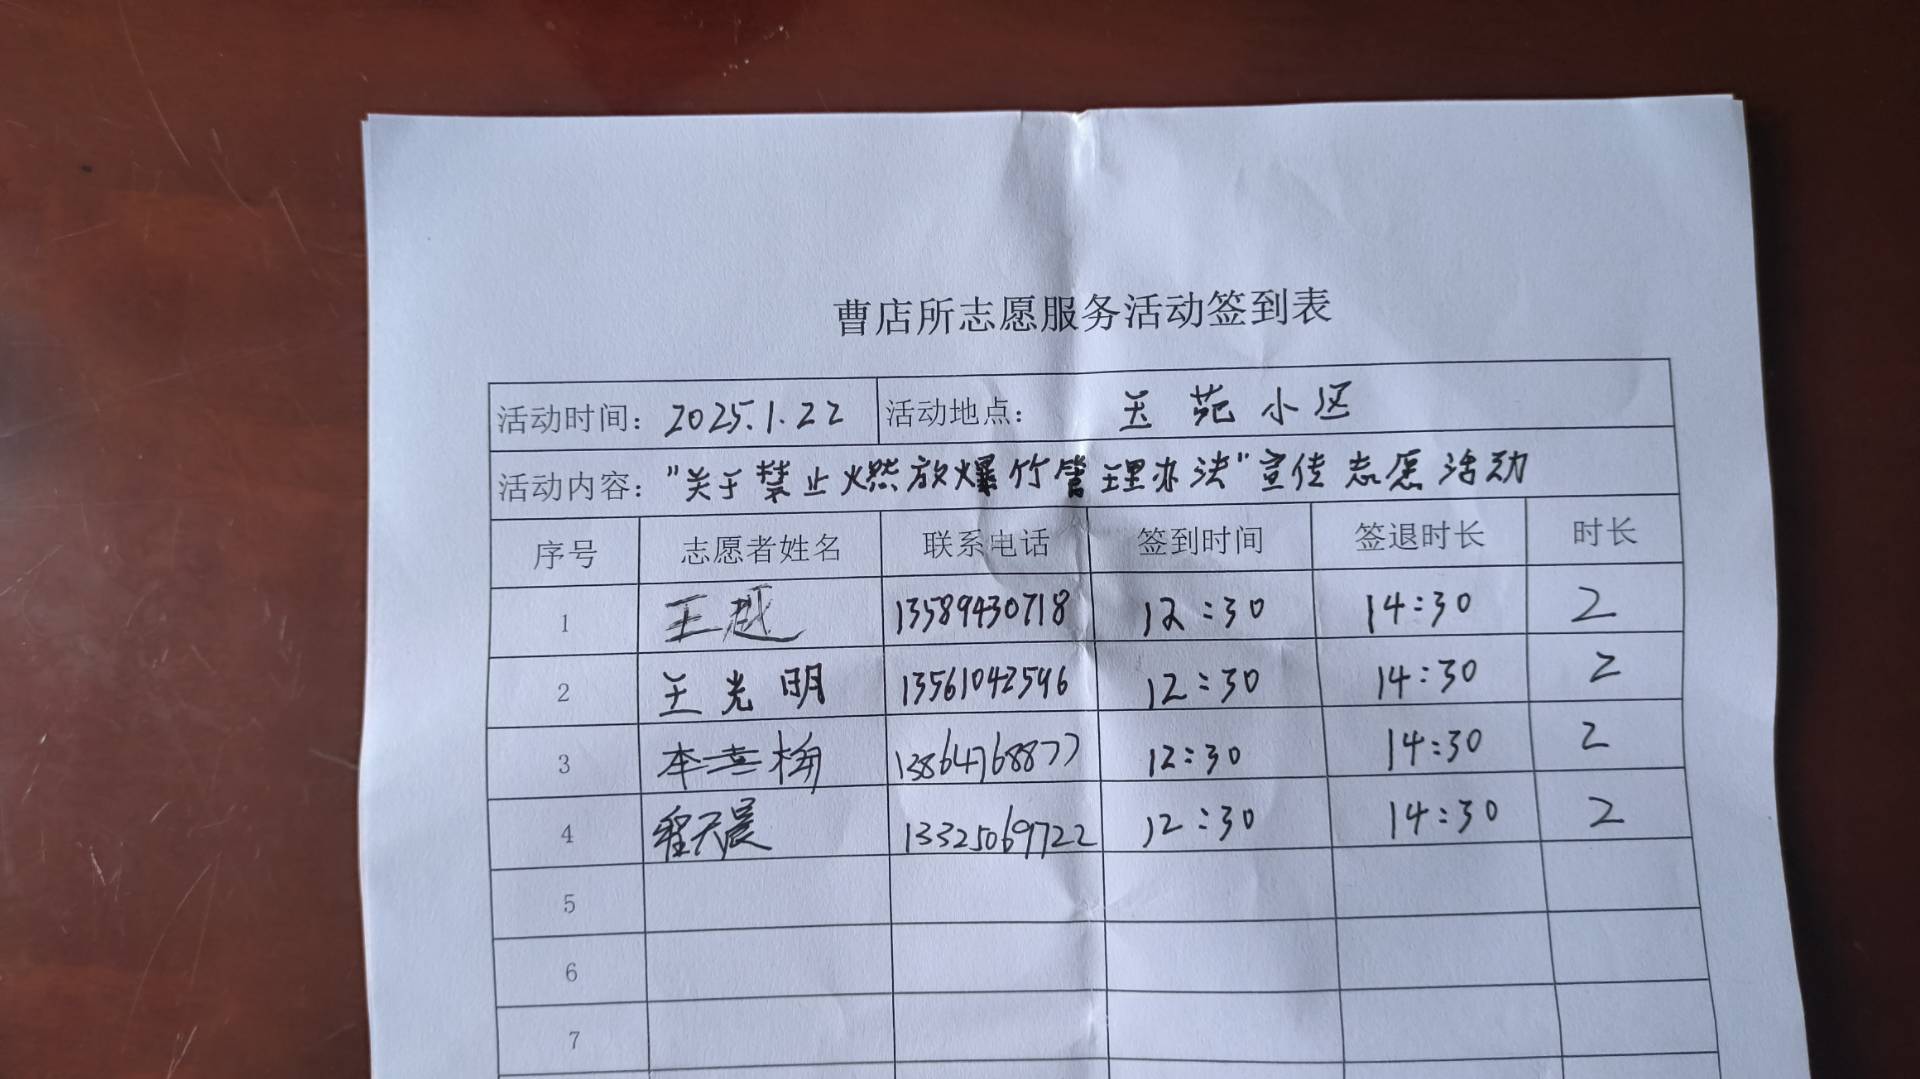 曹店所志愿服务活动签到表
活动时间：2025.1.22 活动地点： 玉苑小区
活动内容："关于禁止燃放爆竹管理办法"宣传志愿活动
序号 志愿者姓名 联系电话 签到时间 签退时长 时长
1 王越 13589430718 12:30 14:30 2
2 王光明 13561042546 12:30 14:30 2
3 李喜梅 13864768877 12:30 14:30 2
4 程天晨 13325069722 12:30 14:30 2
5
6
7